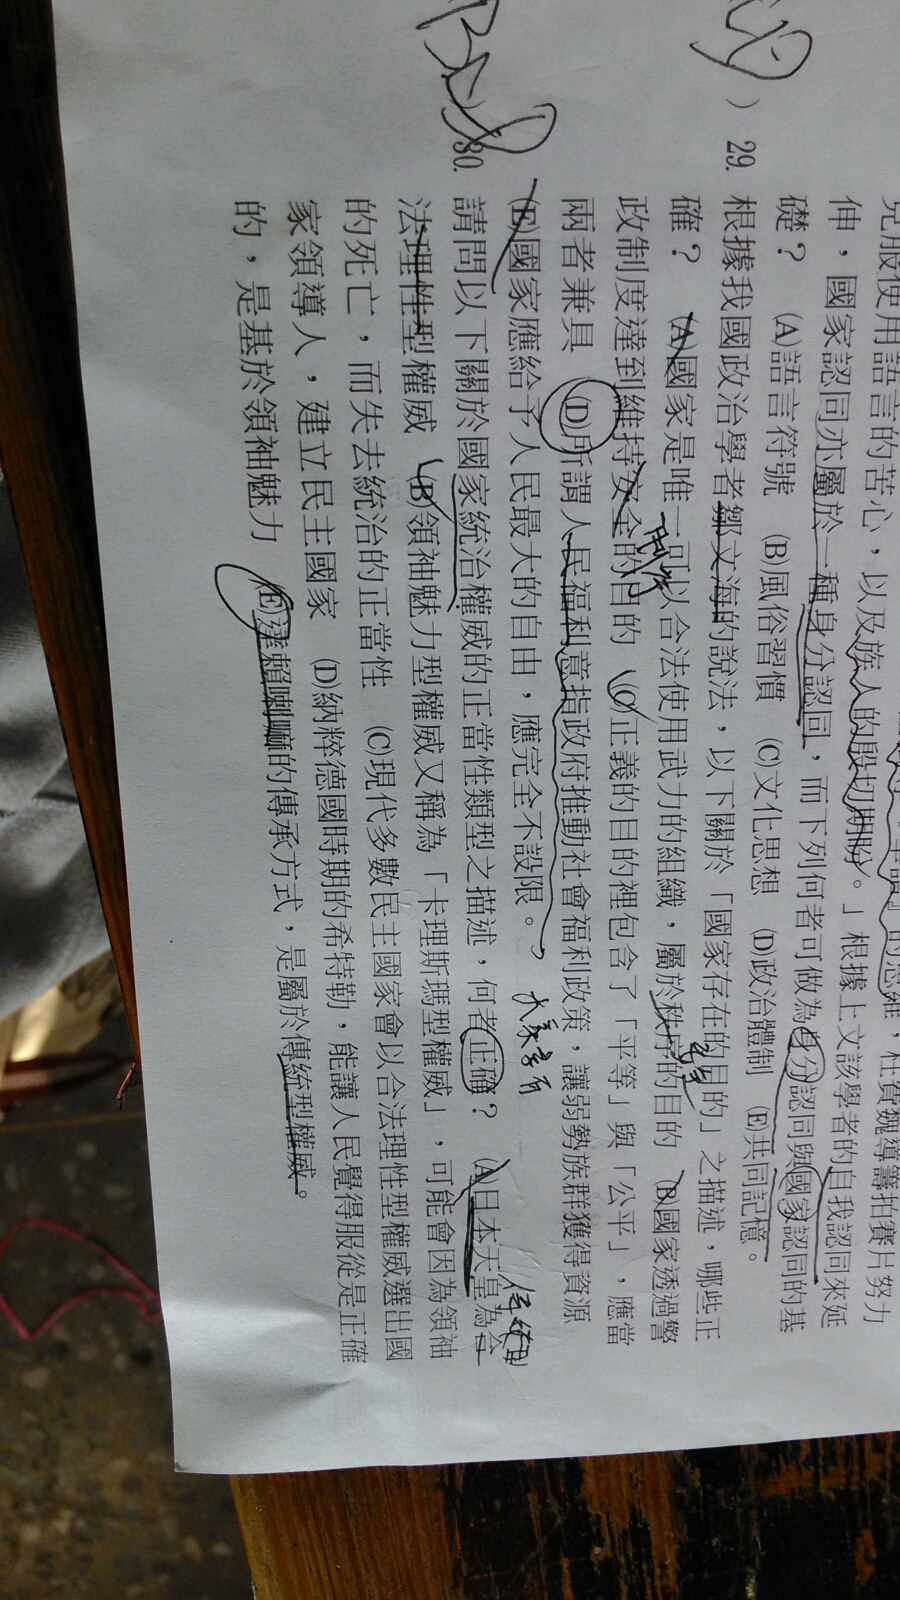 兒服使用語言的苦心，以及族人的殷切期盼。」根據上文該學者的自我認同來延
伸，國家認同亦屬於一種身分認同，而下列何者可做為身分認同與國家認同的基
礎？ (A)語言符號 (B)風俗習慣 (C)文化思想 (D)政治體制 (E)共同記憶。
) 29. 根據我國政治學者鄒文海的說法，以下關於「國家存在的目的」之描述，哪些正
確？ (A)國家是唯一可以合法使用武力的組織，屬於秩序的目的 (B)國家透過警
政制度達到維持安全的目的 (C)正義的目的裡包含了「平等」與「公平」，應當
兩者兼具 (D)所謂人民福利意指政府推動社會福利政策，讓弱勢族群獲得資源
(E)國家應給予人民最大的自由，應完全不設限。
大家享有
30. 請問以下關於國家統治權威的正當性類型之描述，何者正確？ (A)日本天皇為合
傳統型
法理性型權威 (B)領袖魅力型權威又稱為「卡理斯瑪型權威」，可能會因為領袖
的死亡，而失去統治的正當性 (C)現代多數民主國家會以合法理性型權威選出國
家領導人，建立民主國家 (D)納粹德國時期的希特勒，能讓人民覺得服從是正確
的，是基於領袖魅力 (E)達賴喇嘛的傳承方式，是屬於傳統型權威。